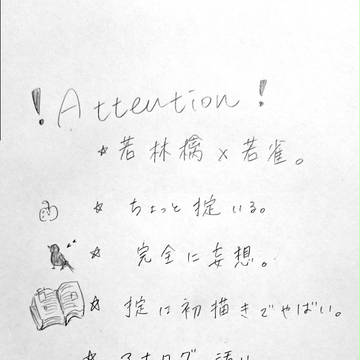 ! Attention !
☆ 若林檎×若雀。
☆ ちょっと掟いる。
☆ 完全に妄想。
☆ 掟は初描きでやばい。